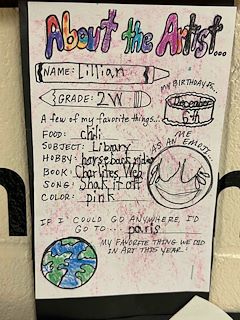 About the Artist...
NAME: Lillian
MY BIRTHDAY IS...
December 6th
GRADE: 2W
A few of my favorite things...
ME AS AN EMOJI...
FOOD: chili
SUBJECT: Library
HOBBY: horseback riding
BOOK: Charlottes Web
SONG: Shak it off
COLOR: pink
IF I COULD GO ANYWHERE, I'D
GO TO... paris
MY FAVORITE THING WE DID
IN ART THIS YEAR: